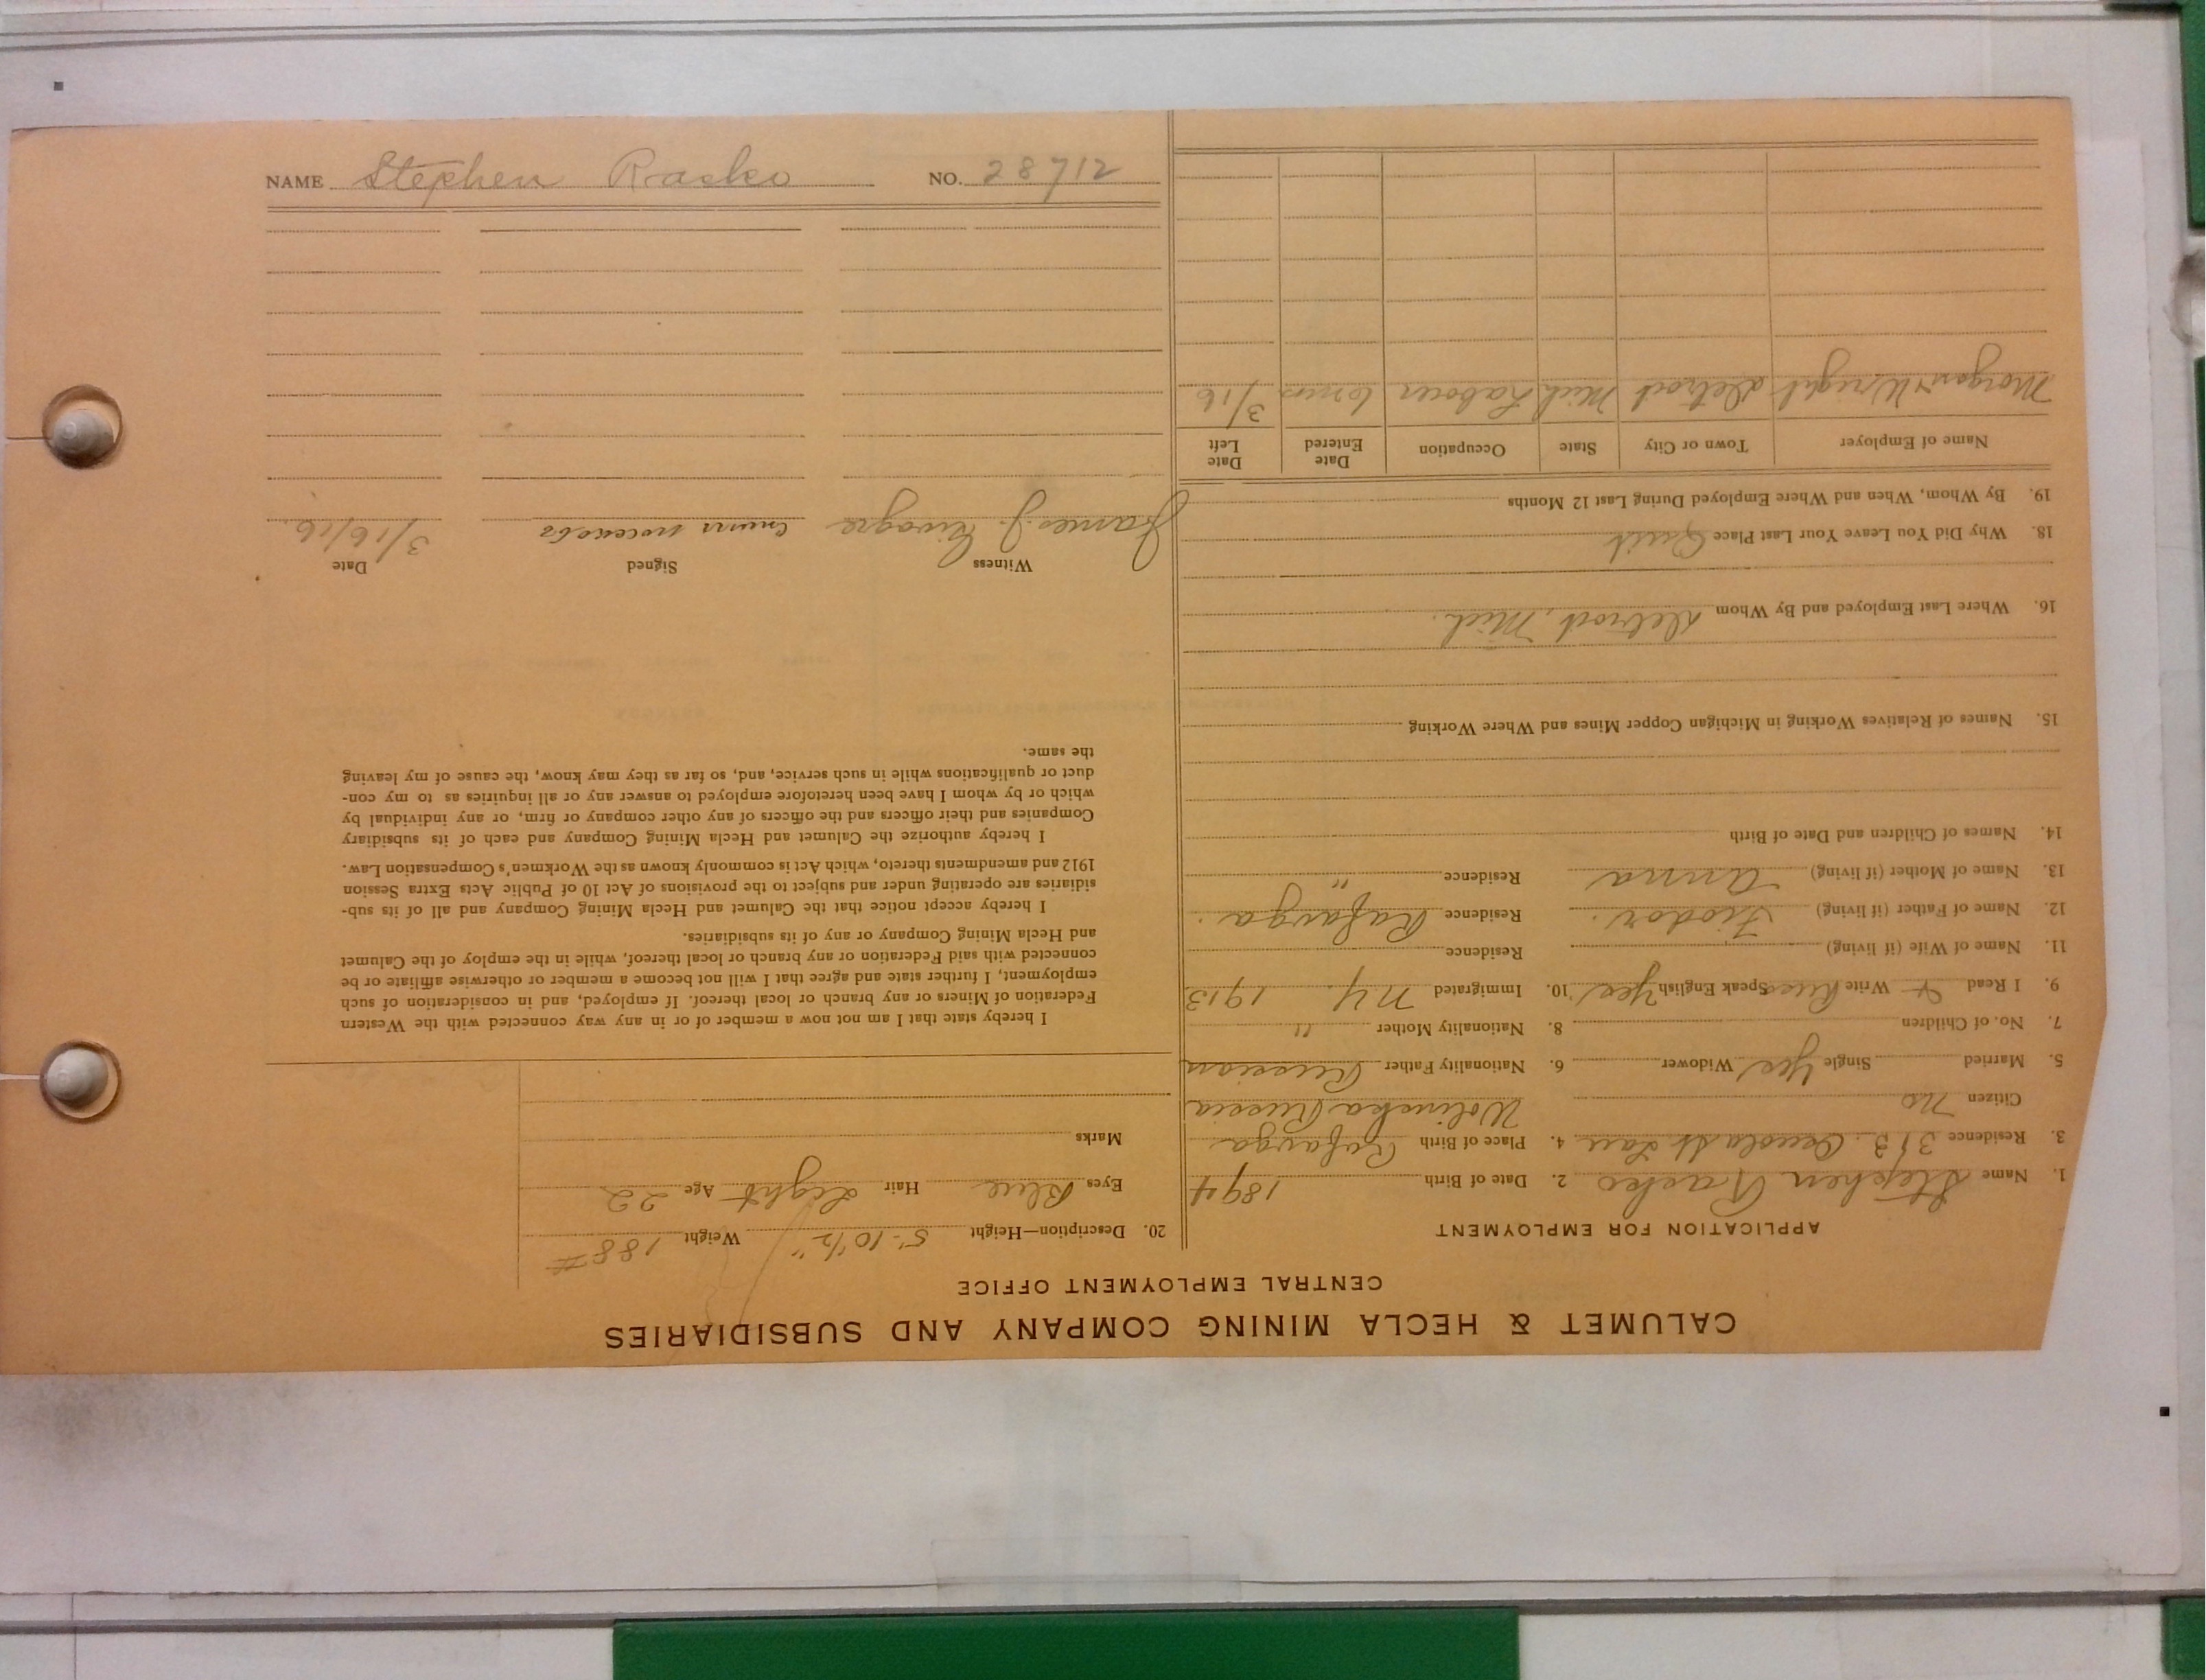 CALUMET & HECLA MINING COMPANY AND SUBSIDIARIES
CENTRAL EMPLOYMENT OFFICE
APPLICATION FOR EMPLOYMENT
1. Name Stephen Racko 2. Date of Birth 1894
3. Residence 313 Osceola St Lau 4. Place of Birth Rafavga
Citizen No Wolinska Russia
5. Married Single Yes Widower 6. Nationality Father Russian
7. No. of Children 8. Nationality Mother "
9. I Read & Write Russ Speak English Yes 10. Immigrated N.Y. 1913
11. Name of Wife (if living) Residence
12. Name of Father (if living) Fiodor. Residence Rafavga.
13. Name of Mother (if living) Anna Residence "
14. Names of Children and Date of Birth
15. Names of Relatives Working in Michigan Copper Mines and Where Working
16. Where Last Employed and By Whom Detroit, Mich.
18. Why Did You Leave Your Last Place Quit
19. By Whom, When and Where Employed During Last 12 Months
Name of Employer Town or City State Occupation Date Entered Date Left
Morgan & Wright Detroit Mich Laborer 6 mos 3/16
20. Description—Height 5'-10½" Weight 188#
Eyes Blue Hair Light Age 22
Marks
I hereby state that I am not now a member of or in any way connected with the Western
Federation of Miners or any branch or local thereof. If employed, and in consideration of such
employment, I further state and agree that I will not become a member or otherwise affiliate or be
connected with said Federation or any branch or local thereof, while in the employ of the Calumet
and Hecla Mining Company or any of its subsidiaries.
I hereby accept notice that the Calumet and Hecla Mining Company and all of its sub-
sidiaries are operating under and subject to the provisions of Act 10 of Public Acts Extra Session
1912 and amendments thereto, which Act is commonly known as the Workmen's Compensation Law.
I hereby authorize the Calumet and Hecla Mining Company and each of its subsidiary
Companies and their officers and the officers of any other company or firm, or any individual by
which or by whom I have been heretofore employed to answer any or all inquiries as to my con-
duct or qualifications while in such service, and, so far as they may know, the cause of my leaving
the same.
Witness Signed Date
James J. 3/16/16
NAME Stephen Racko NO. 28712